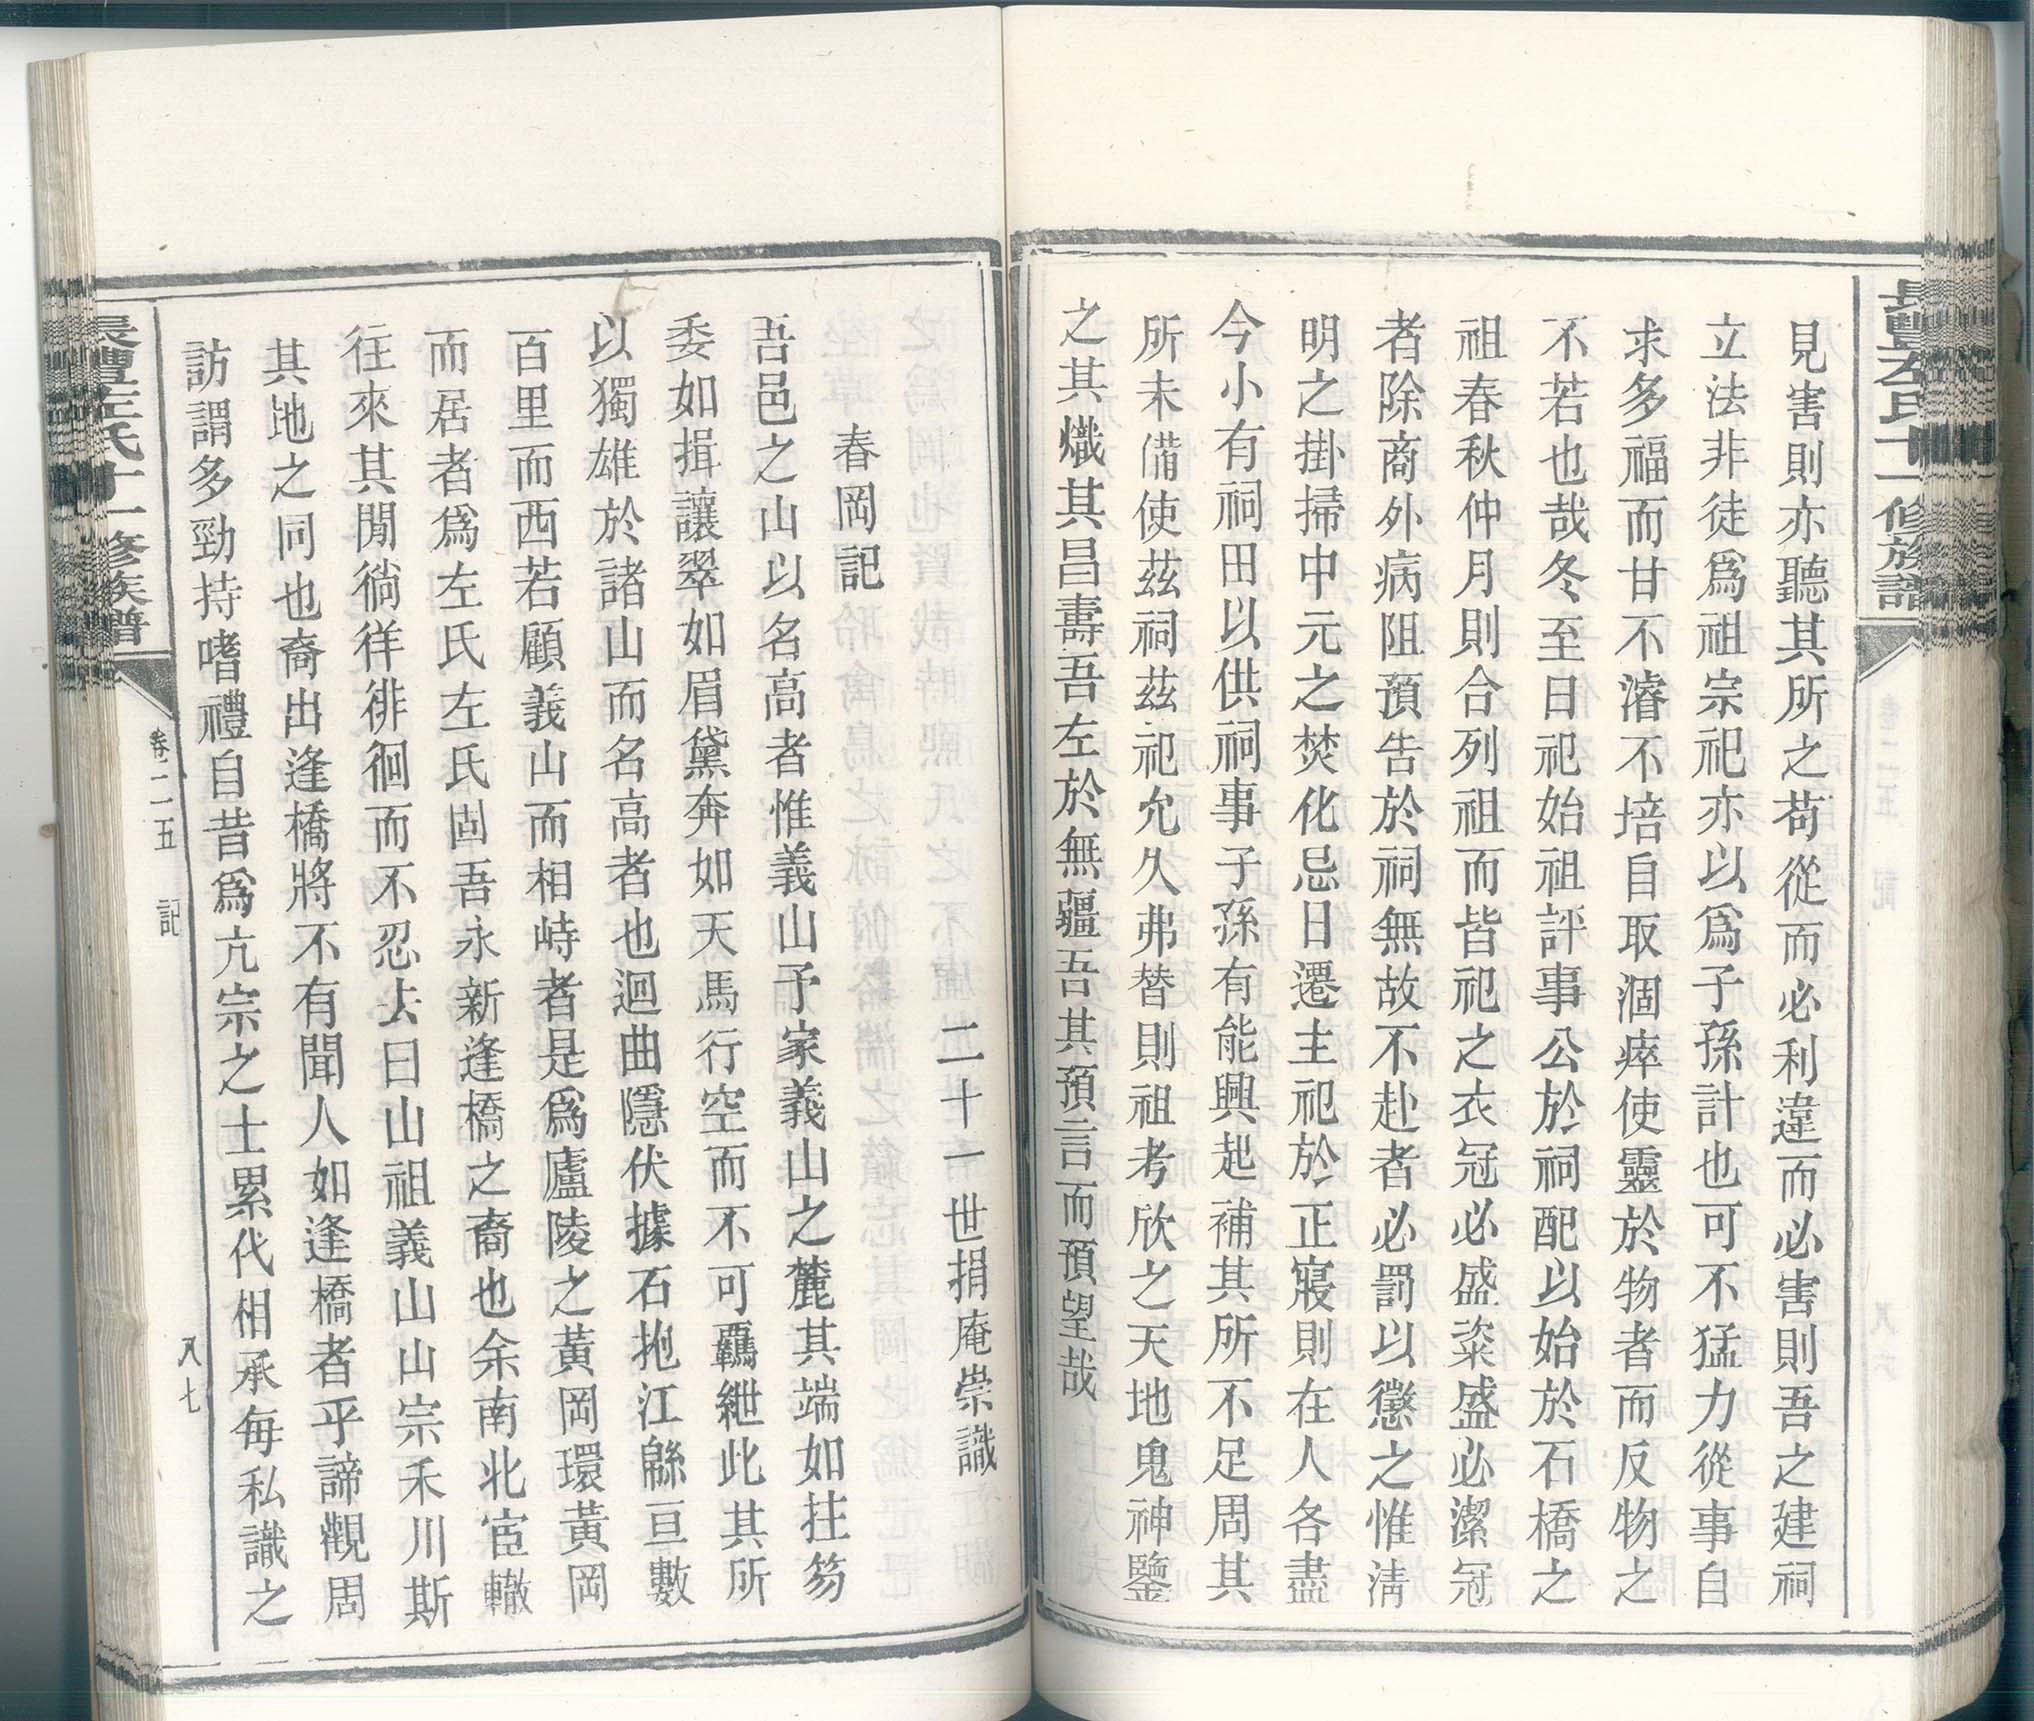 見害則亦聽其所之苟從而必利違而必害則吾之建祠
立法非徒爲祖宗祀亦以爲子孫計也可不猛力從事自
求多福而甘不濬不培自取涸瘁使靈於物者而反物之
不若也哉冬至日祀始祖評事公於祠配以始於石橋之
祖春秋仲月則合列祖而皆祀之衣冠必盛粢盛必潔冠
者除商外病阻預告於祠無故不赴者必罰以懲之惟淸
明之掛掃中元之焚化忌日遷主祀於正寢則在人各盡
今小有祠田以供祠事子孫有能興起補其所不足周其
所未備使茲祠茲祀允久弗替則祖考欣之天地鬼神鑒
之其熾其昌壽吾左於無疆吾其預言而預望哉
二十一世捐庵崇識
春岡記
吾邑之山以名高者惟義山予家義山之麓其端如拄笏
委如揖讓翠如眉黛奔如天馬行空而不可羈紲此其所
以獨雄於諸山而名高者也迴曲隱伏據石抱江緜亘數
百里而西若顧義山而相峙者是爲廬陵之黃岡環黃岡
而居者爲左氏左氏固吾永新逢橋之裔也余南北宦轍
往來其閒徜徉徘徊而不忍去曰山祖義山山宗禾川斯
其地之同也裔出逢橋將不有聞人如逢橋者乎諦觀周
訪謂多勁持嗜禮自昔爲亢宗之士累代相承每私識之
長澧左氏十一修族譜
卷二五 記
八七